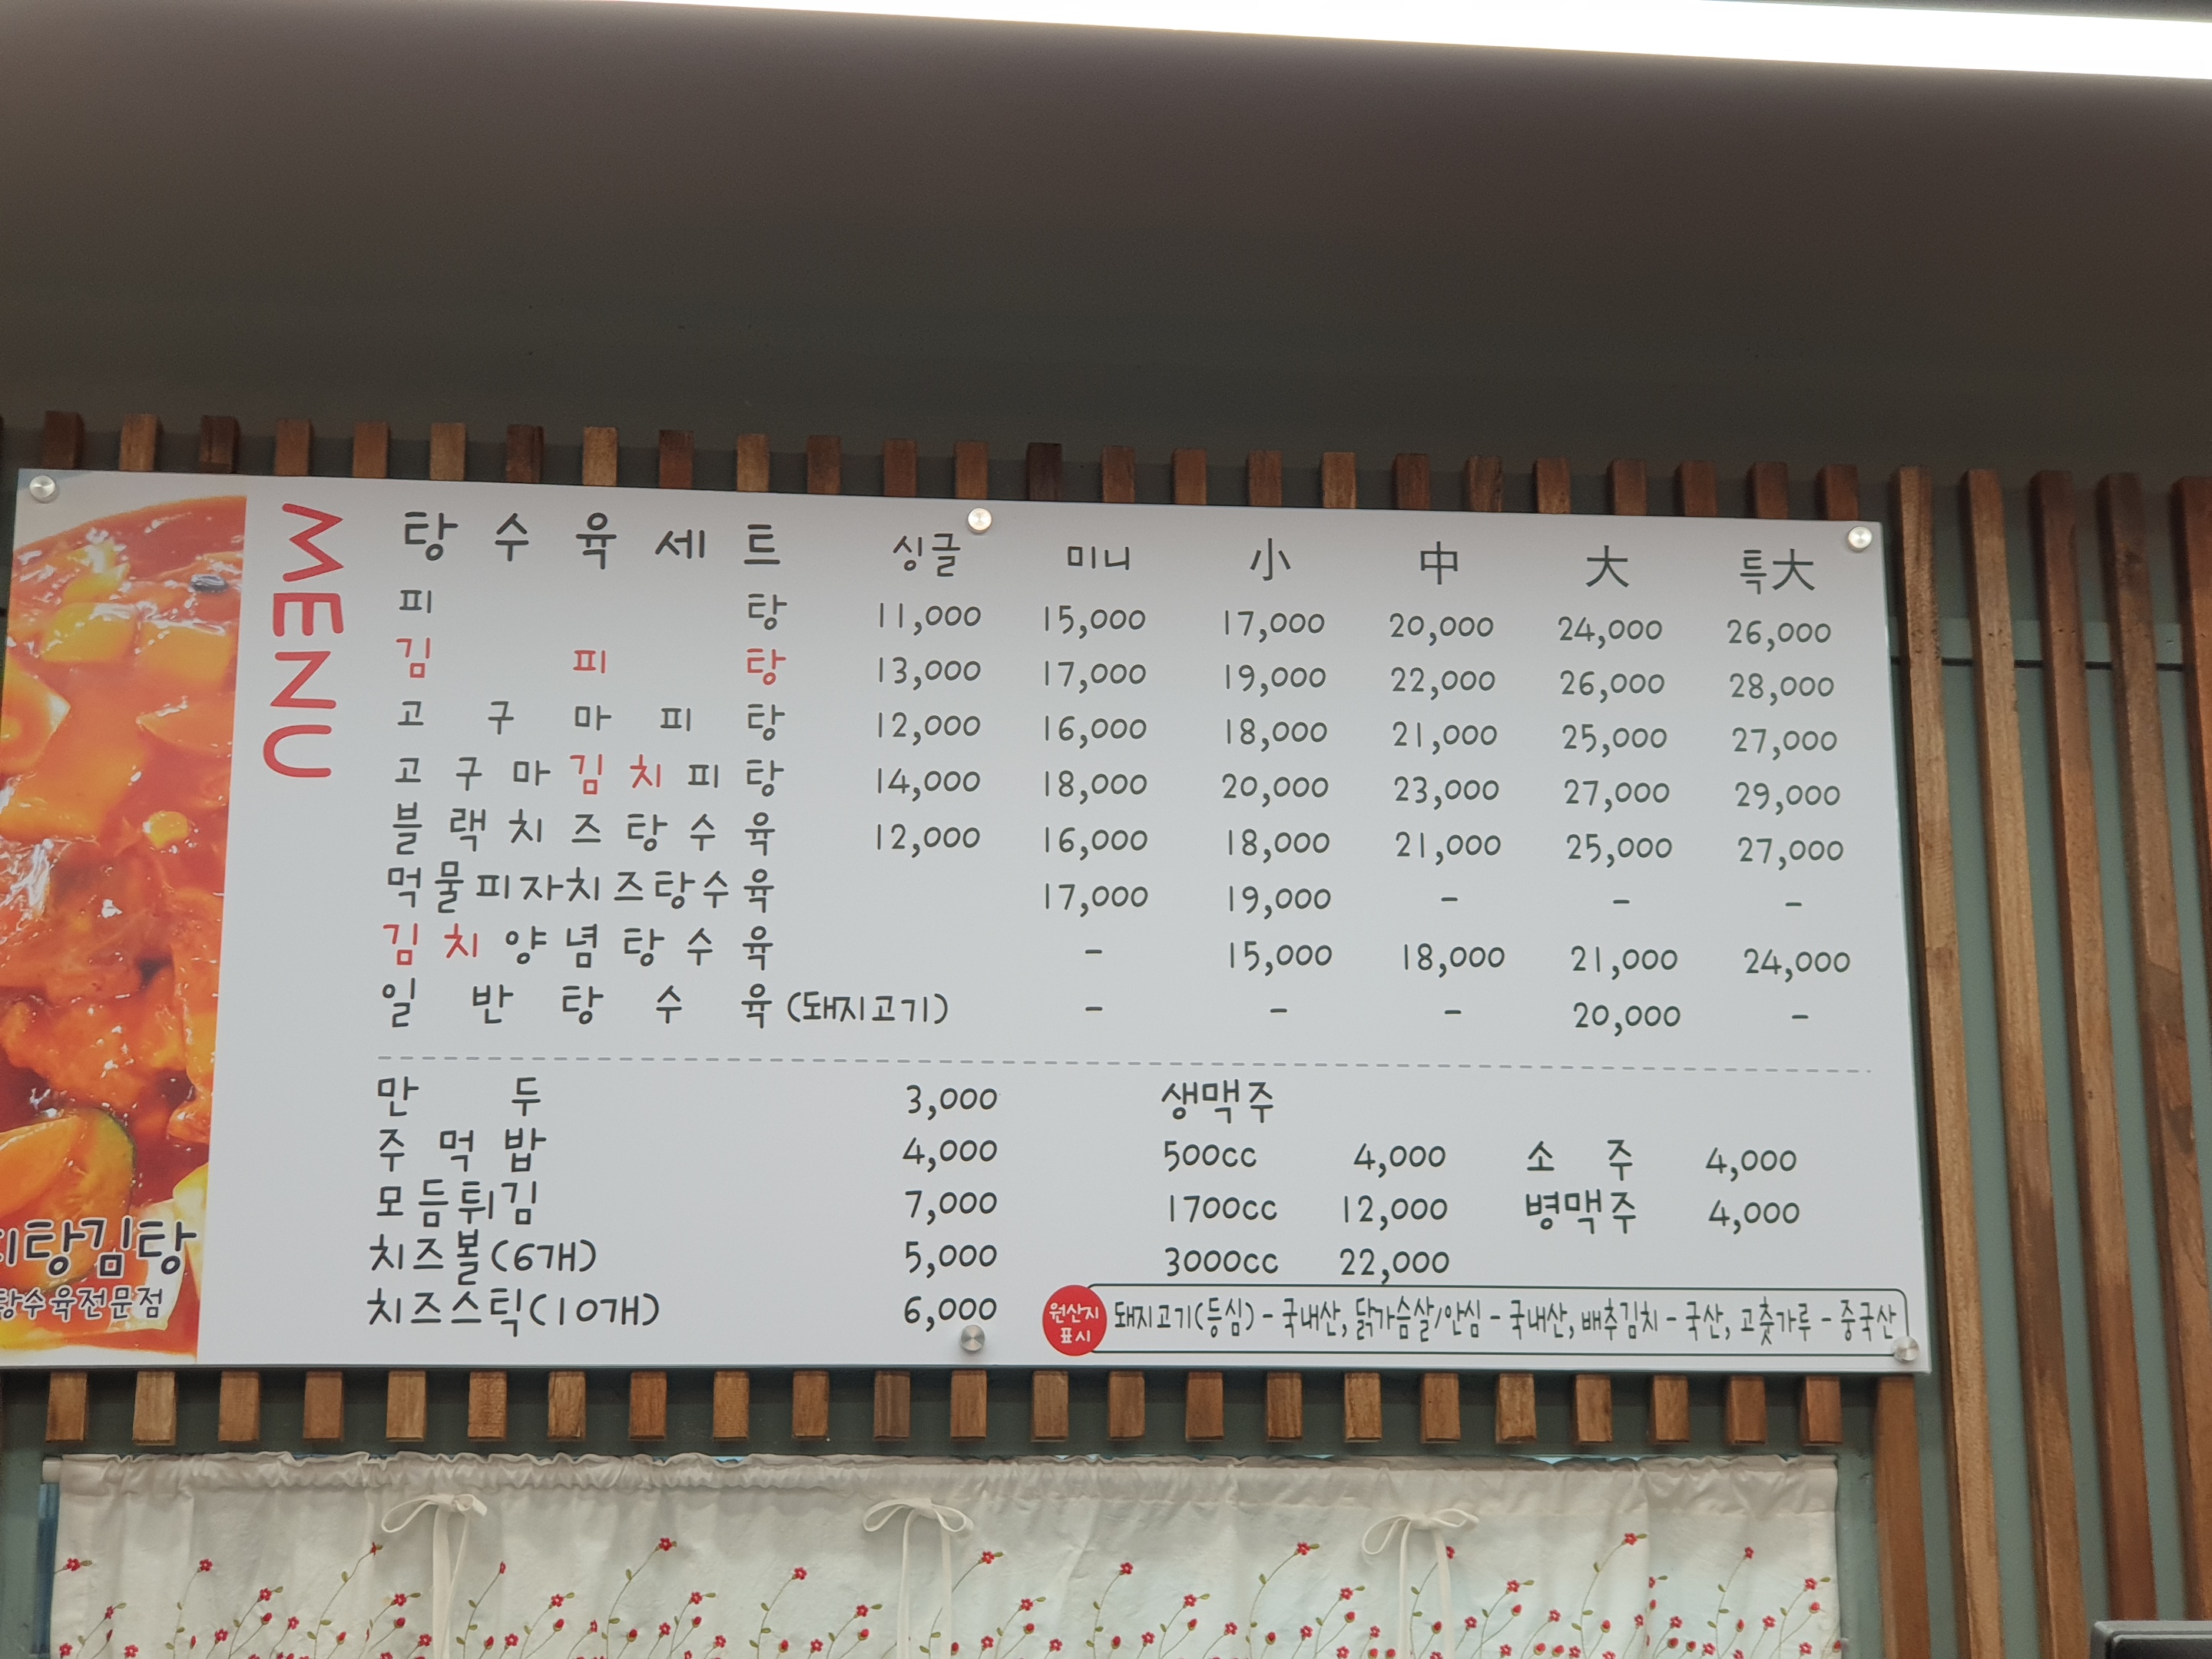 MENU
탕수육세트 싱글 미니 小 中 大 특大
피탕 11,000 15,000 17,000 20,000 24,000 26,000
김피탕 13,000 17,000 19,000 22,000 26,000 28,000
고구마피탕 12,000 16,000 18,000 21,000 25,000 27,000
고구마김치피탕 14,000 18,000 20,000 23,000 27,000 29,000
블랙치즈탕수육 12,000 16,000 18,000 21,000 25,000 27,000
먹물피자치즈탕수육 17,000 19,000 - - -
김치양념탕수육 - 15,000 18,000 21,000 24,000
일반탕수육(돼지고기) - - - 20,000 -
만두 3,000
주먹밥 4,000
모듬튀김 7,000
치즈볼(6개) 5,000
치즈스틱(10개) 6,000
생맥주
500cc 4,000
1700cc 12,000
3000cc 22,000
소주 4,000
병맥주 4,000
원산지
표시
돼지고기(등심) - 국내산, 닭가슴살/안심 - 국내산, 배추김치 - 국산, 고춧가루 - 중국산
피탕김탕
탕수육전문점